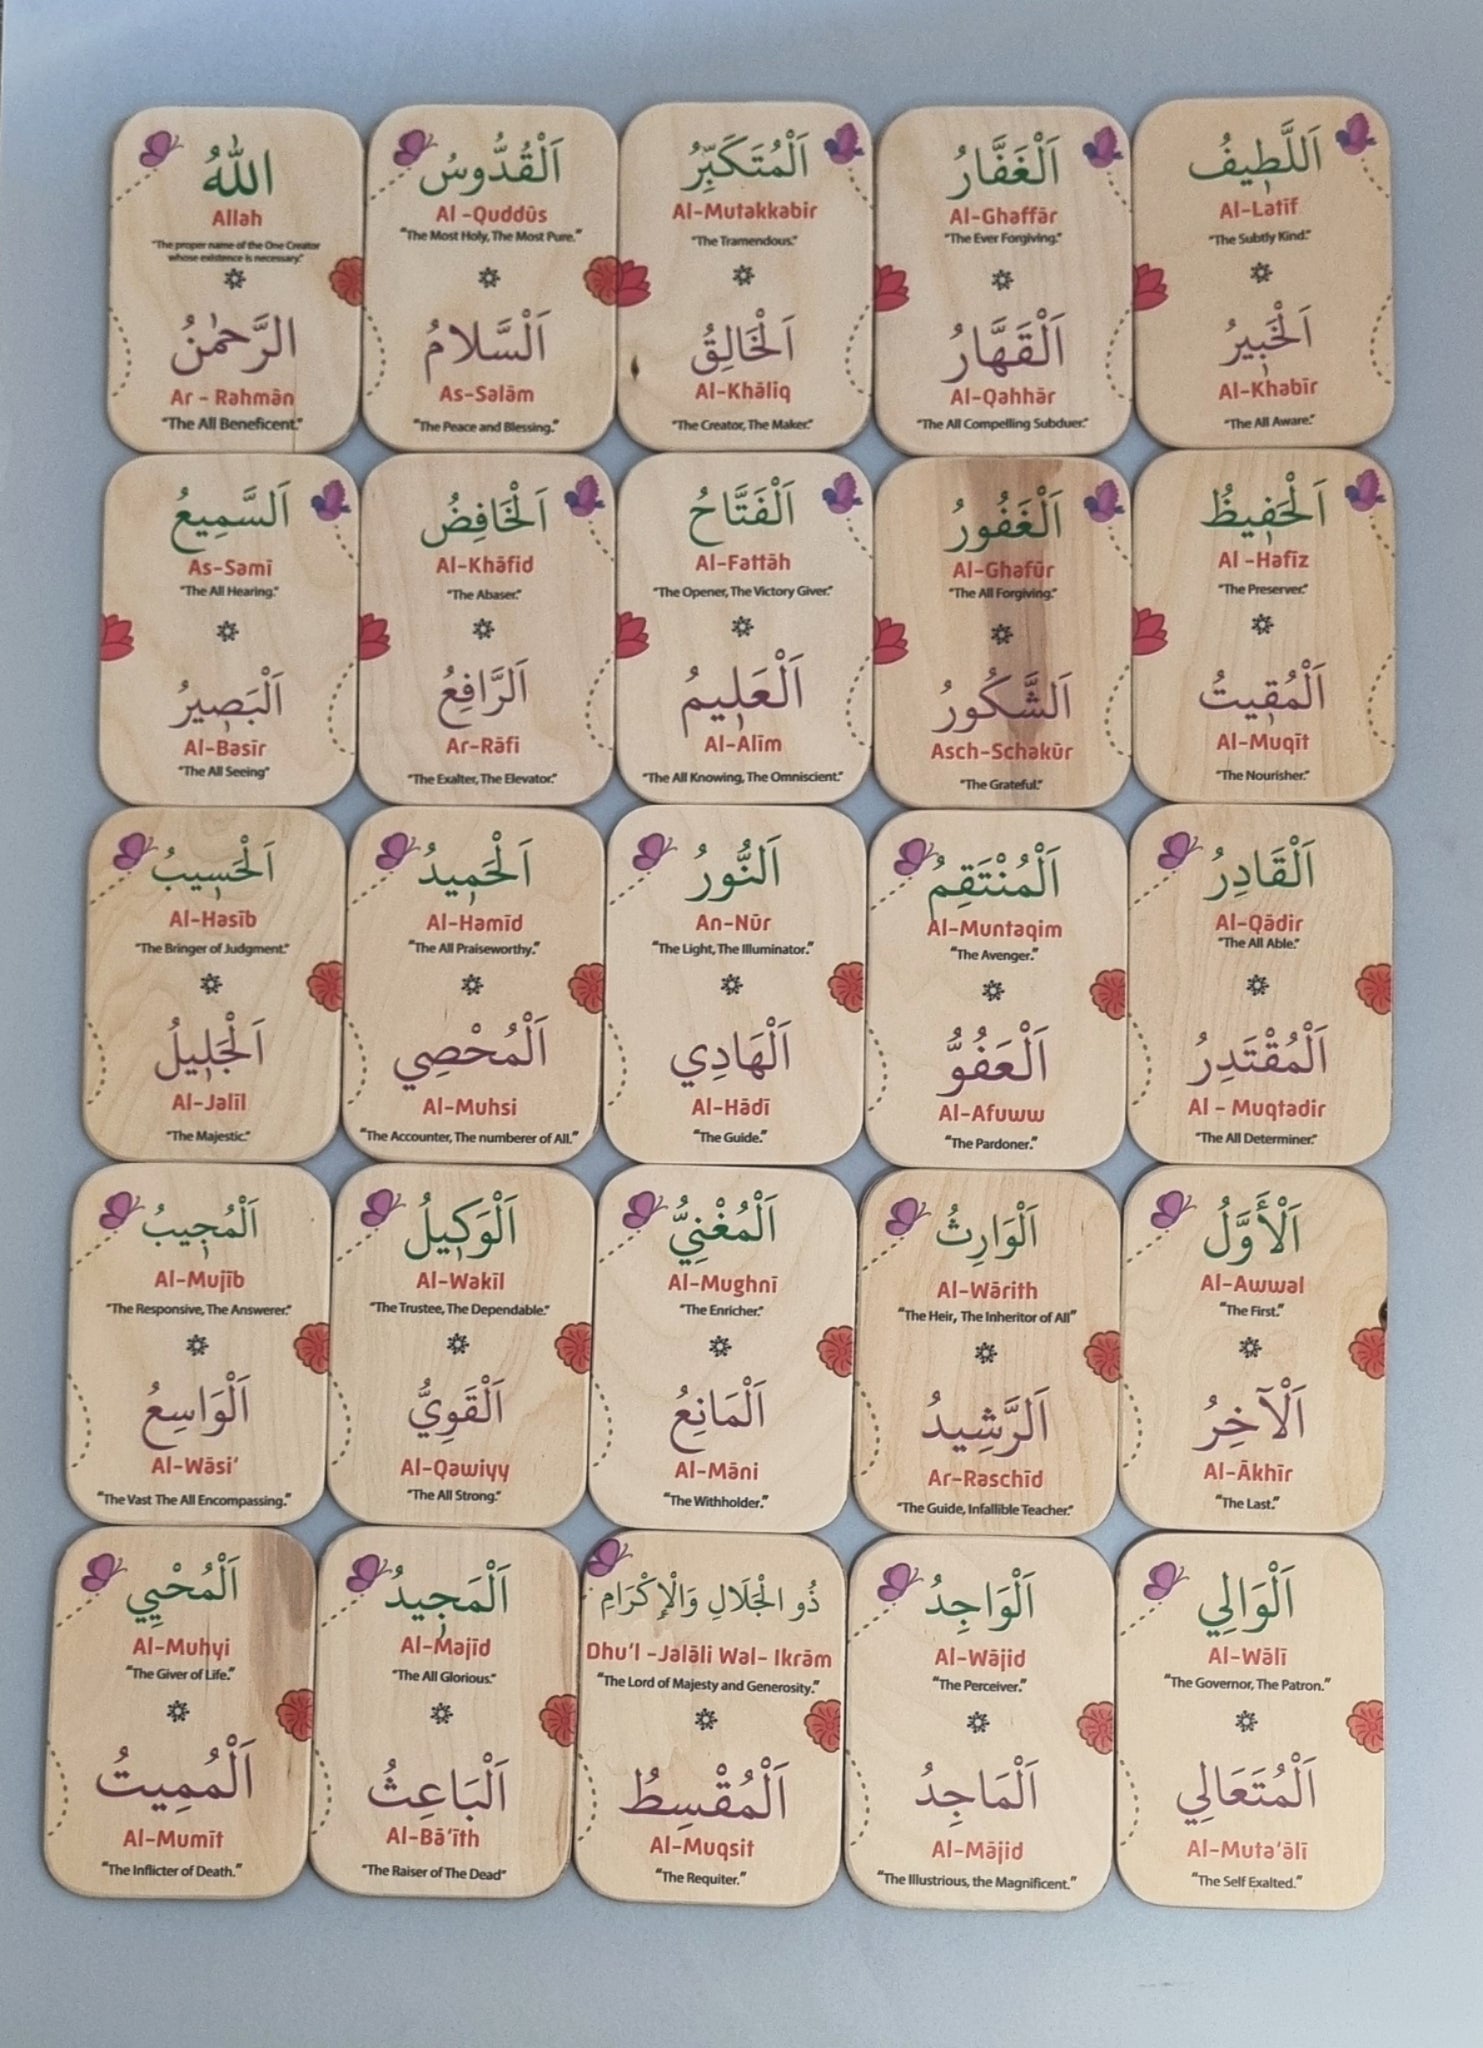 اللّٰهُ
Allah
"The proper name of the One Creator
whose existence is necessary."
الرَّحْمٰنُ
Ar - Rahmân
"The All Beneficent."
اَلْقُدُّوسُ
Al -Quddûs
"The Most Holy, The Most Pure."
اَلْسَّلَامُ
As-Salām
"The Peace and Blessing."
اَلْمُتَكَبِّرُ
Al-Mutakkabir
"The Tramendous."
اَلْخَالِقُ
Al-Khāliq
"The Creator, The Maker."
اَلْغَفَّارُ
Al-Ghaffār
"The Ever Forgiving."
اَلْقَهَّارُ
Al-Qahhār
"The All Compelling Subduer."
اَللَّطِيفُ
Al-Latīf
"The Subtly Kind."
اَلْخَبِيرُ
Al-Khabīr
"The All Aware."
اَلسَّمِيعُ
As-Samī
"The All Hearing."
اَلْبَصِيرُ
Al-Basīr
"The All Seeing"
اَلْخَافِضُ
Al-Khāfid
"The Abaser."
اَلرَّافِعُ
Ar-Rāfi
"The Exalter, The Elevator."
اَلْفَتَّاحُ
Al-Fattāh
"The Opener, The Victory Giver."
اَلْعَلِيمُ
Al-Alīm
"The All Knowing, The Omniscient."
اَلْغَفُورُ
Al-Ghafūr
"The All Forgiving."
اَلشَّكُورُ
Asch-Schakūr
"The Grateful."
اَلْحَفِيظُ
Al -Hafīz
"The Preserver."
اَلْمُقِيتُ
Al-Muqīt
"The Nourisher."
اَلْحَسِيبُ
Al-Hasīb
"The Bringer of Judgment."
اَلْجَلِيلُ
Al-Jalīl
"The Majestic."
اَلْحَمِيدُ
Al-Hamīd
"The All Praiseworthy."
اَلْمُحْصِي
Al-Muhsi
"The Accounter, The numberer of All."
اَلنُّورُ
An-Nūr
"The Light, The Illuminator."
اَلْهَادِي
Al-Hādī
"The Guide."
اَلْمُنْتَقِمُ
Al-Muntaqim
"The Avenger."
اَلْعَفُوُّ
Al-Afuww
"The Pardoner."
اَلْقَادِرُ
Al-Qādir
"The All Able."
اَلْمُقْتَدِرُ
Al - Muqtadir
"The All Determiner."
اَلْمُجِيبُ
Al-Mujīb
"The Responsive, The Answerer."
اَلْوَاسِعُ
Al-Wāsi'
"The Vast The All Encompassing."
اَلْوَكِيلُ
Al-Wakīl
"The Trustee, The Dependable."
اَلْقَوِيُّ
Al-Qawiyy
"The All Strong."
اَلْمُغْنِيُّ
Al-Mughnī
"The Enricher."
اَلْمَانِعُ
Al-Māni
"The Withholder."
اَلْوَارِثُ
Al-Wārith
"The Heir, The Inheritor of All"
اَلرَّشِيدُ
Ar-Raschīd
"The Guide, Infallible Teacher."
اَلْأَوَّلُ
Al-Awwal
"The First."
اَلْآخِرُ
Al-Ākhīr
"The Last."
اَلْمُحْيِي
Al-Muhyi
"The Giver of Life."
اَلْمُمِيتُ
Al-Mumīt
"The Inflicter of Death."
اَلْمَجِيدُ
Al-Majīd
"The All Glorious."
اَلْبَاعِثُ
Al-Bā'īth
"The Raiser of The Dead"
ذُو الْجَلَالِ وَالْإِكْرَامِ
Dhu'l -Jalāli Wal- Ikrām
"The Lord of Majesty and Generosity."
اَلْمُقْسِطُ
Al-Muqsit
"The Requiter."
اَلْوَاجِدُ
Al-Wājid
"The Perceiver."
اَلْمَاجِدُ
Al-Mājid
"The Illustrious, the Magnificent."
اَلْوَالِي
Al-Wālī
"The Governor, The Patron."
اَلْمُتَعَالِي
Al-Muta'ālī
"The Self Exalted."